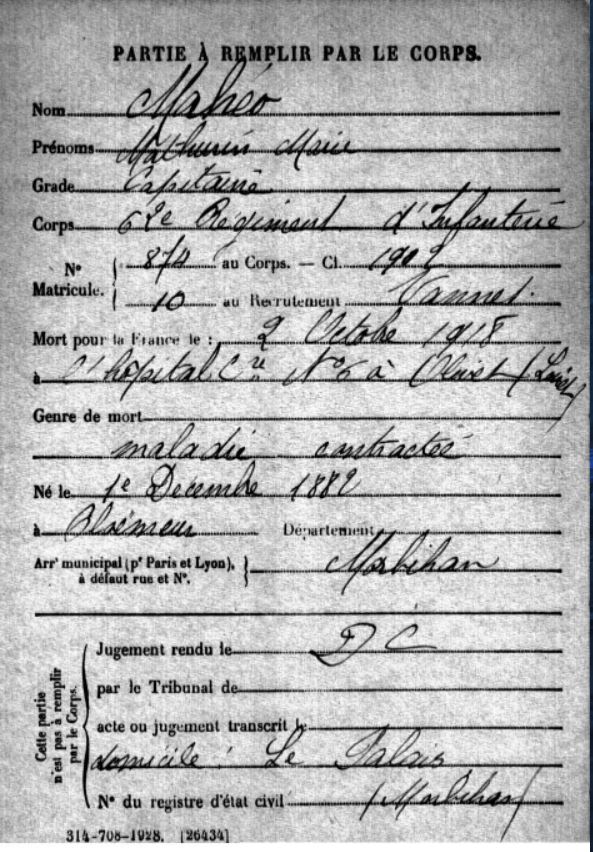 PARTIE À REMPLIR PAR LE CORPS.
Nom Mahéo
Prénoms Mathurin Marie
Grade Capitaine
Corps 62e Régiment d'Infanterie
N° Matricule. 874 au Corps. — Cl. 1902
10 au Recrutement Vannes.
Mort pour la France le : 9 Octobre 1918
à l'hôpital Cre N°6 à Olivet (Loiret)
Genre de mort
maladie contractée
Né le 1e Décembre 1882
à Ploemeur Département
Arrt municipal (pr Paris et Lyon), à défaut rue et N°. Morbihan
Cette partie n'est pas à remplir par le Corps.
Jugement rendu le DC
par le Tribunal de
acte ou jugement transcrit le
domicile : Le Palais
N° du registre d'état civil (Morbihan)
314-708-1928. [26434]